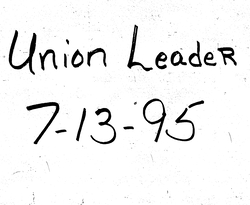 Union Leader
7-13-95